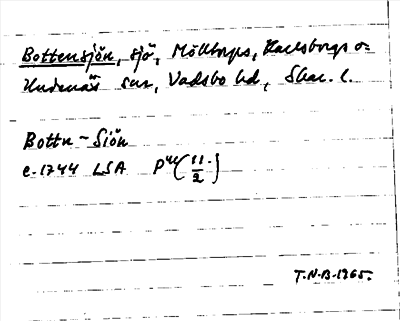 Bottensjön, sjö, Mölltorps, Karlsborgs o.
Undenäs snr, Vadsbo hd, Skar. l.
Bottn-Siön
e. 1744 LSA P44(11/2)
T.N-B-1965.